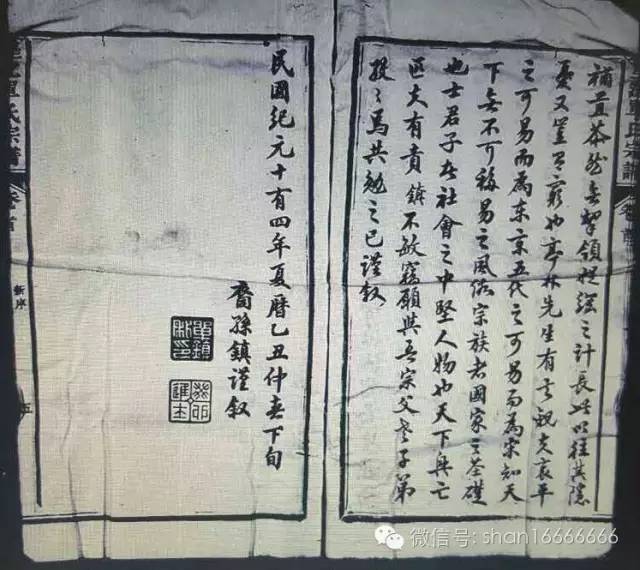 氏宗譜
補苴苶然無挈領提綱之計長此以往其隱
憂又豈有窮也亭林先生有言觀夫哀平
之可易而為东京五代之可易而為宋知天
下無不可移易之風俗宗族者國家之基礎
也士君子者社會之中堅人物也天下興亡
匹夫有責鎮不敏竊願與吾宗父老子弟
焉共勉之已謹叙
民國紀元十有四年夏曆乙丑仲春下旬
裔孫鎮謹叙
單鎮私印
癸卯進士
單氏宗譜
卷首
新序
五
微信号: shan16666666